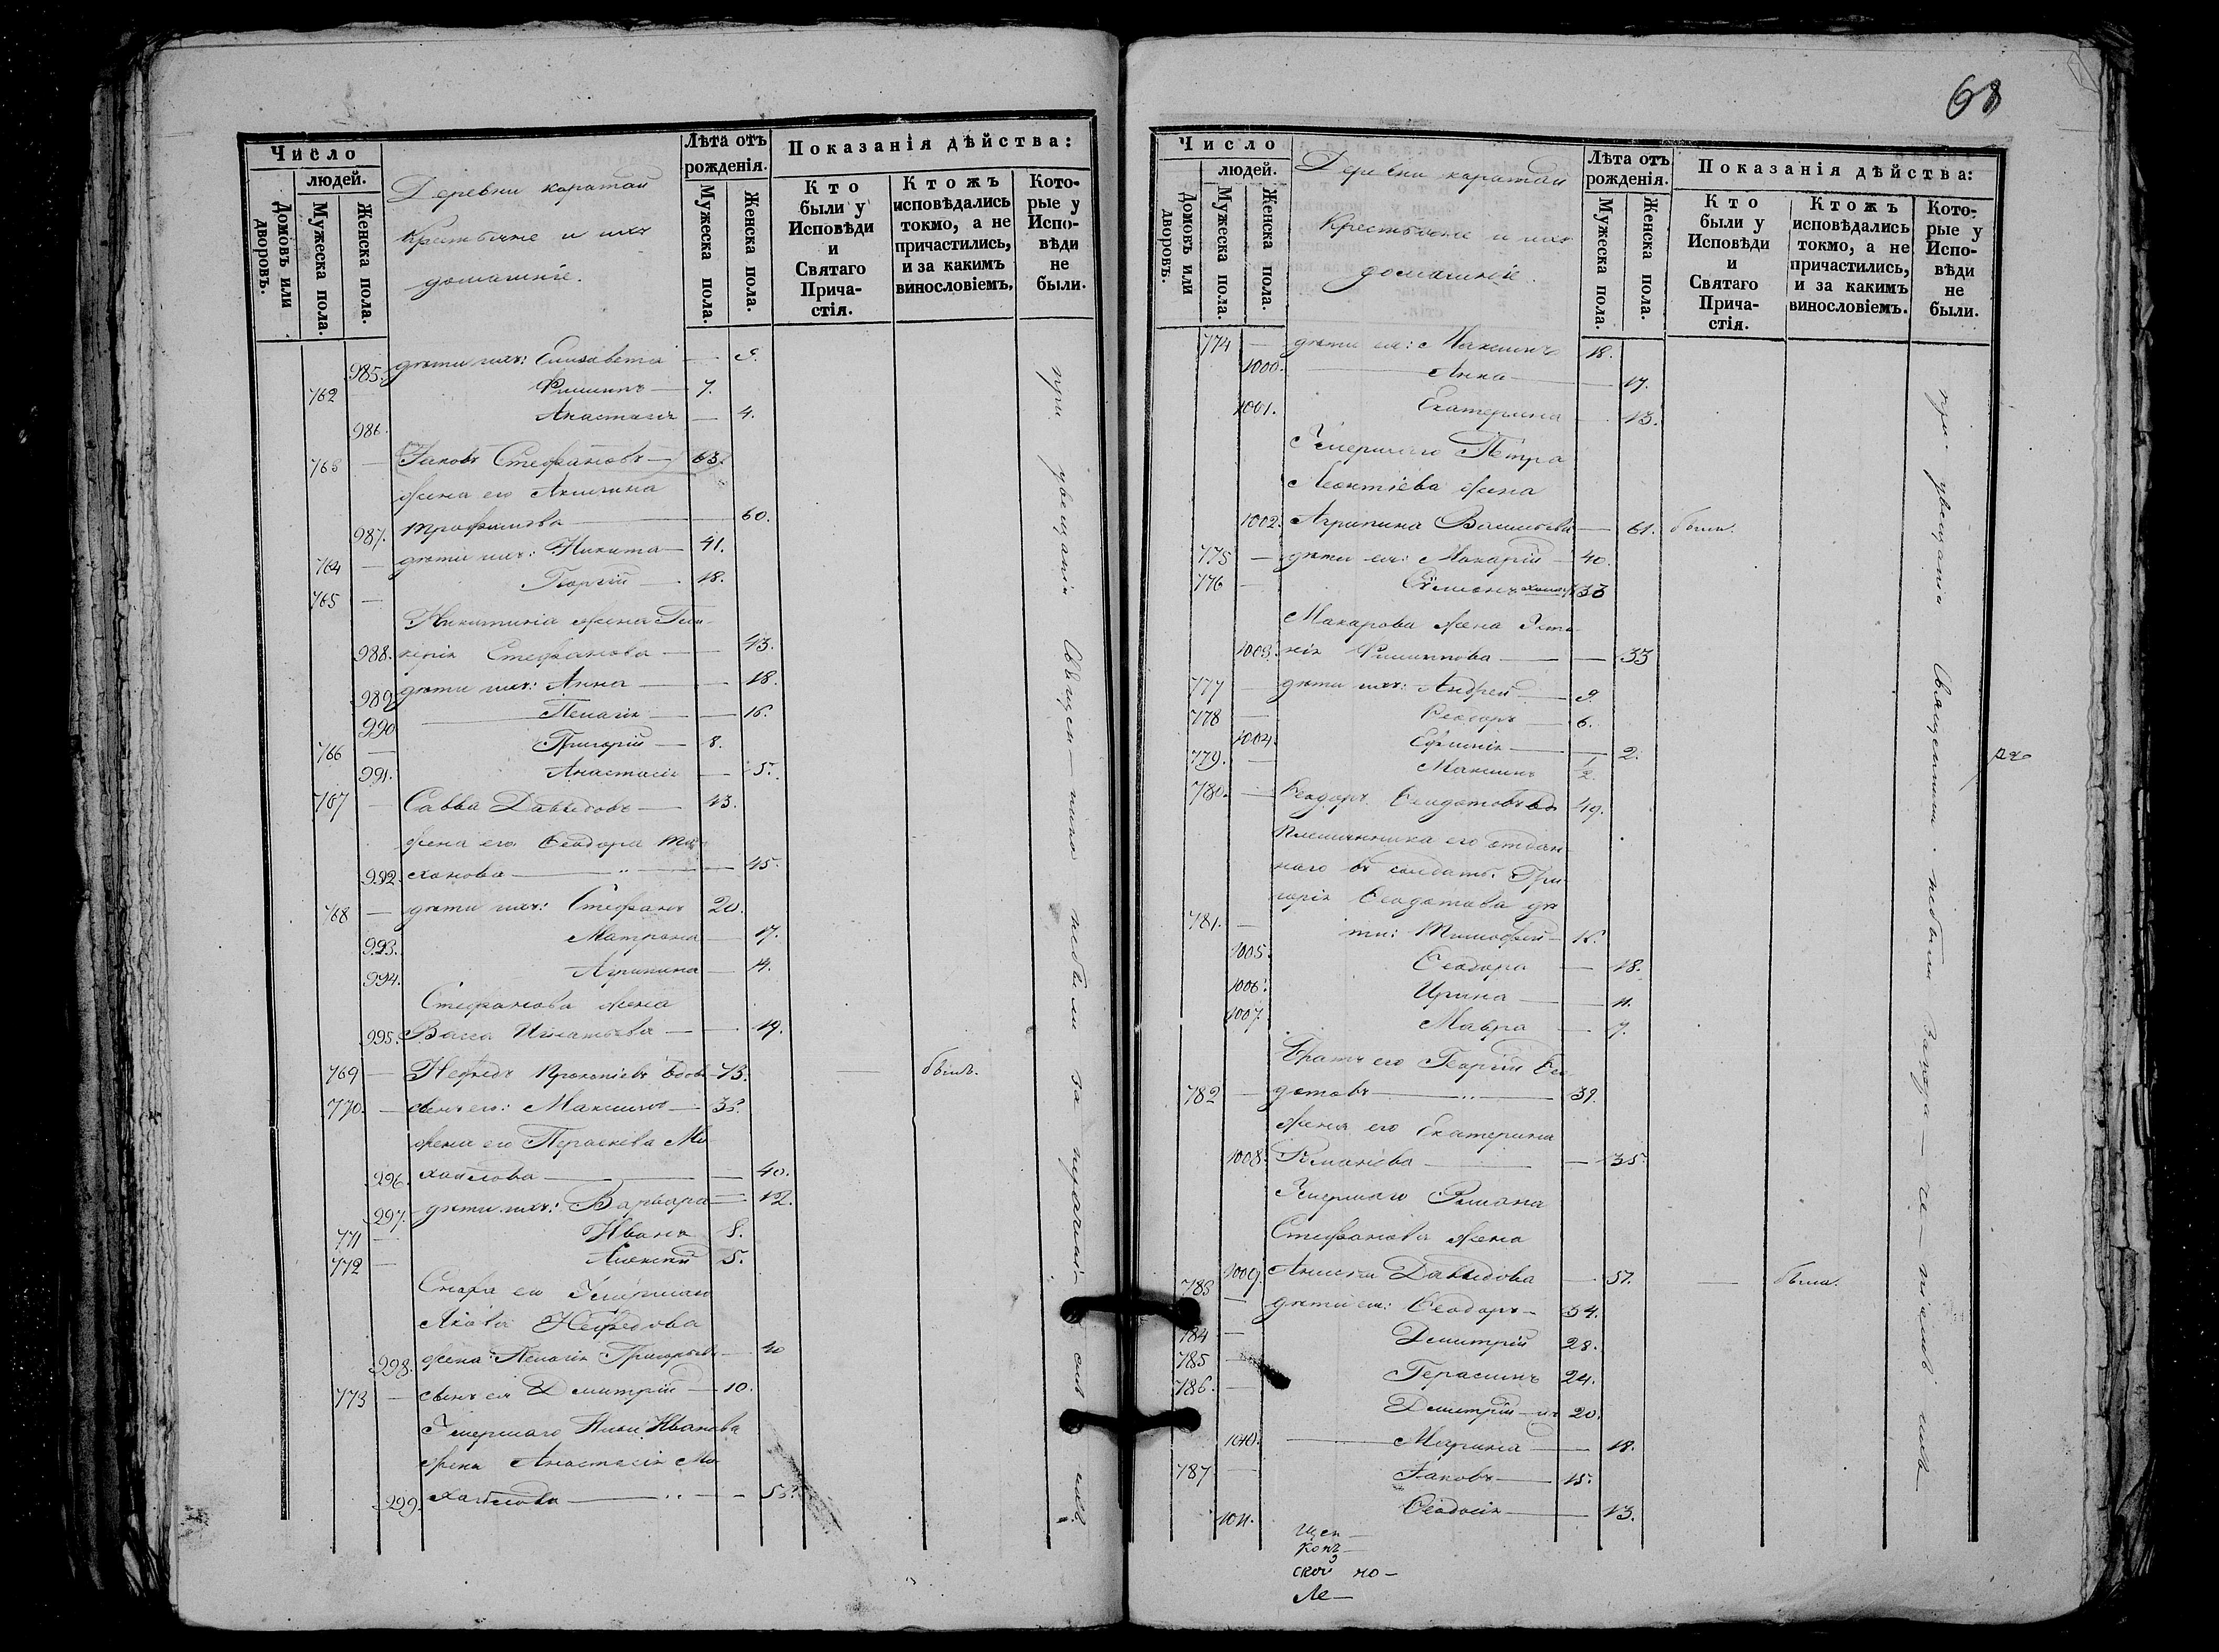 Число
людей.
Домовъ или дворовъ.
Мужеска пола.
Женска пола.
Деревни каратай
Крестьяне и ихъ
домашніе.
Лѣта отъ рожденія.
Мужеска пола.
Женска пола.
Показанія дѣйства:
Кто были у Исповѣди и Святаго Прича-стія.
Ктожъ исповѣдались токмо, а не причастились, и за какимъ винословіемъ,
Кото-рые у Испо-вѣди не были.
985. дѣти ихъ: Елисавета — 9.
762 Филиппъ — 7.
986. Анастасія — 4.
763 — Іаковъ Стефановъ — 63.
жена его Акилина
987. Трофимова — 60.
764 — дѣти ихъ: Никита — 41.
765 — Георгій — 18.
Никитина жена Гли-
988. керія Стефанова — 43.
989 дѣти ихъ: Анна — 18.
990 Пелагія — 16.
766 — Григорій — 8.
991. Анастасія — 5.
767 — Савва Давыдовъ — 43.
жена его Ѳеодора
992. — 45.
768 — дѣти ихъ: Стефанъ 20.
993. Матрона — 17.
994. Агрипина — 14.
Стефанова жена
995. Васса Игнатьева — 19.
769 — Нефедъ Прокопіевъ вдов — 73. — былъ.
770. — сынъ его: Максимъ — 38.
жена его Параскева Ми
996. хайлова — 40.
997. дѣти ихъ: Варвара — 12.
771 — Иванъ 8.
772 — Алексѣй 5.
Сноха его Умершаго
Якова Нефедова
998. жена: Пелагія Григорьева — 40
773 — сынъ ея Димитрій — 10.
Умершаго Ильи Иванова
жена Анастасія Ми
999. хайлова — 53.
при увещаніи небыли за
68
Число
людей.
Домовъ или дворовъ.
Мужеска пола.
Женска пола.
Деревни каратай
Крестьяне и ихъ
домашніе.
Лѣта отъ рожденія.
Мужеска пола.
Женска пола.
Показанія дѣйства:
Кто были у Исповѣди и Святаго Прича-стія.
Ктожъ исповѣдались токмо, а не причастились, и за какимъ винословіемъ.
Кото-рые у Испо-вѣди не были.
774 — дѣти ея: Максимъ 18.
1000. Анна — 17.
1001. Екатерина — 13.
Умершаго Петра
Леонтіева жена
1002. Агрипина Васильева — 61. была.
775 — дѣти ея: Макарій — 40.
776 — Симеонъ холос 33
Макарова жена Усти-
1003. нія Филиппова — 33
777 — дѣти ихъ: Андрей — 9.
778 — Ѳеодоръ — 6.
1004. Ефимія — 2.
779. — Максимъ 1/2.
780. — Ѳеодоръ Ѳеодотовъ вд 49.
племянника его отдан-
наго въ солдаты Гри-
горія Ѳеодотова дѣ
781. — ти: Тимофей — 15.
1005. Ѳеодора — 18.
1006. Ирина — 11.
1007. Мавра — 7.
Братъ его Георгій Ѳео
782 — дотовъ — 39.
жена его Екатерина
1008. Романова — 35.
Умершаго Романа
Стефанова жена
1009 Анисья Давыдова — 57. — была.
783 — дѣти ея: Ѳеодоръ — 34.
784 — Димитрій 28.
785 — Герасимъ 24.
786. — Димитрій 20.
1010. — Марина — 18.
787 — Іаковъ — 15.
1011. Ѳеодосія — 13.
при увещаніи Священника небыли
Щен —
копъ —
ской но —
Ле —